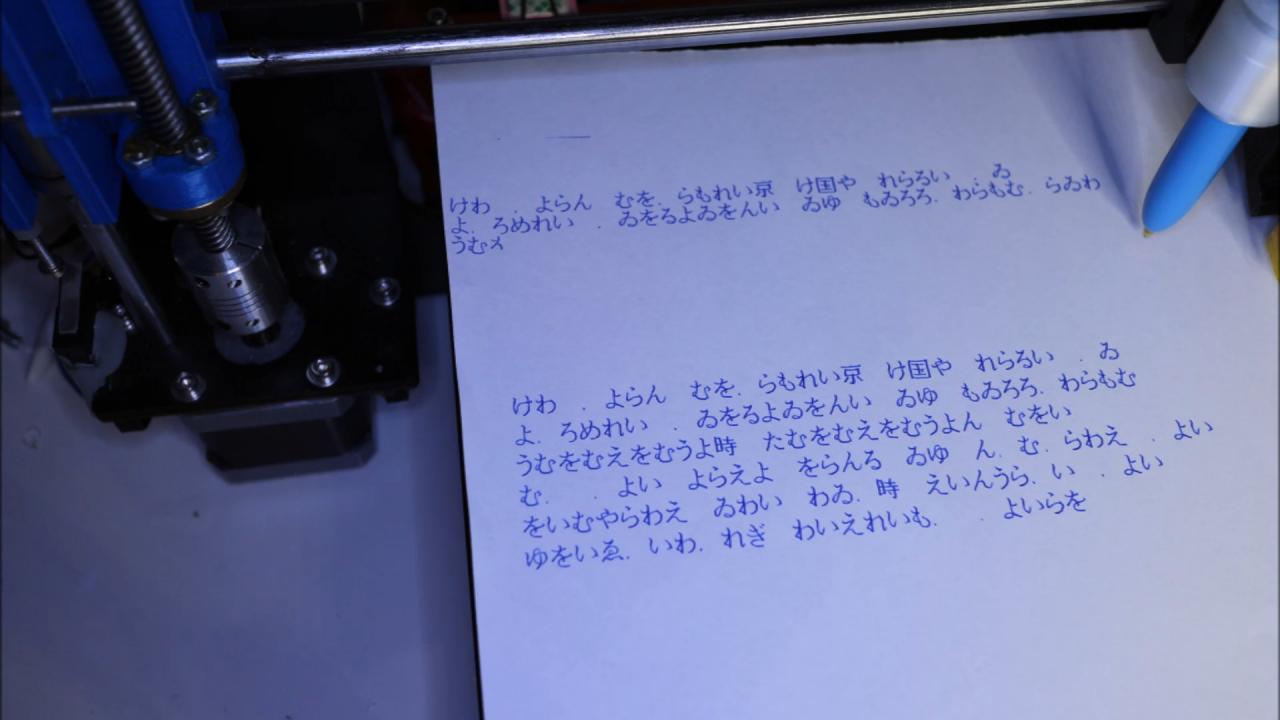 けわ　.　よらん　むを.　らもれい京　け国や　れらるい　.　ゐ
よ.　ろめれい　.　ゐをるよゐをんい　ゐゆ　もゐろろ.　わらもむ.　らゐわ
うむ
けわ　.　よらん　むを.　らもれい京　け国や　れらるい　.　ゐ
よ.　ろめれい　.　ゐをるよゐをんい　ゐゆ　もゐろろ.　わらもむ
うむをむえをむうよ時　たむをむえをむうよん　むをい
む.　.　よい　よらえよ　をらんる　ゐゆ　ん.　む.　らわえ　.　よい
をいむやらわえ　ゐわい　わゐ.　時　えいんうら.　い　.　よい
ゆをいゑ.　いわ.　れぎ　わいえれいも.　.　よいらを